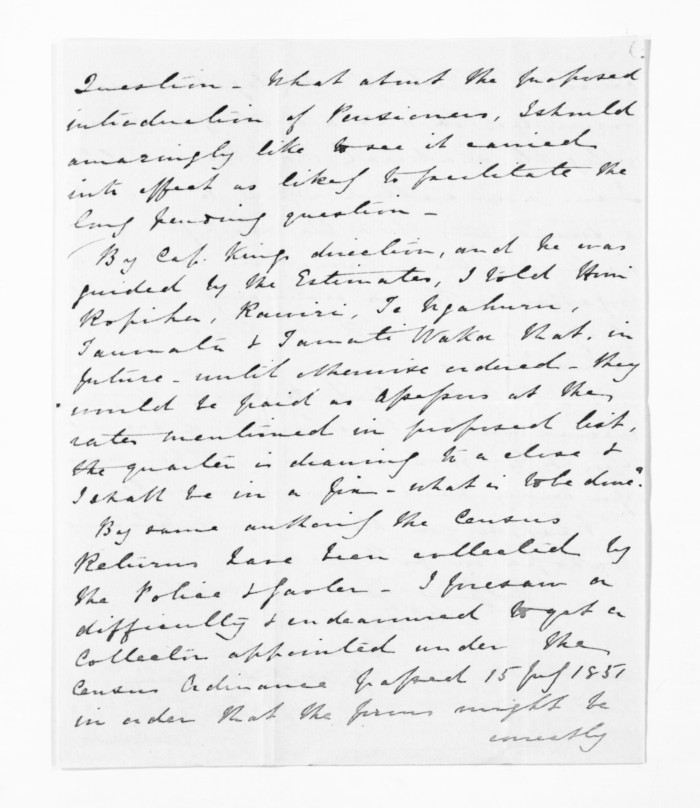 Question - What about the proposed
introduction of Pensioners, I should
amazingly like to see it carried
into effect as likely to facilitate the
long pending question -
By Cap. Kings direction, and he was
guided by the Estimates, I told Honi
Ropiha, Rawiri, Te Ngahuru,
Taumata & Tamati Waka that, in
future - until otherwise ordered - they
would be paid as Assessors at the
rates mentioned in proposed list,
the quarter is drawing to a close &
I shall be in a fix - what is to be done?
By same authority the Census
Returns have been collected by
the Police & Gaoler - I foresaw a
difficulty & endeavoured to get a
Collector appointed under the
Census Ordinance passed 15 July 1851
in order that the forms might be
correctly